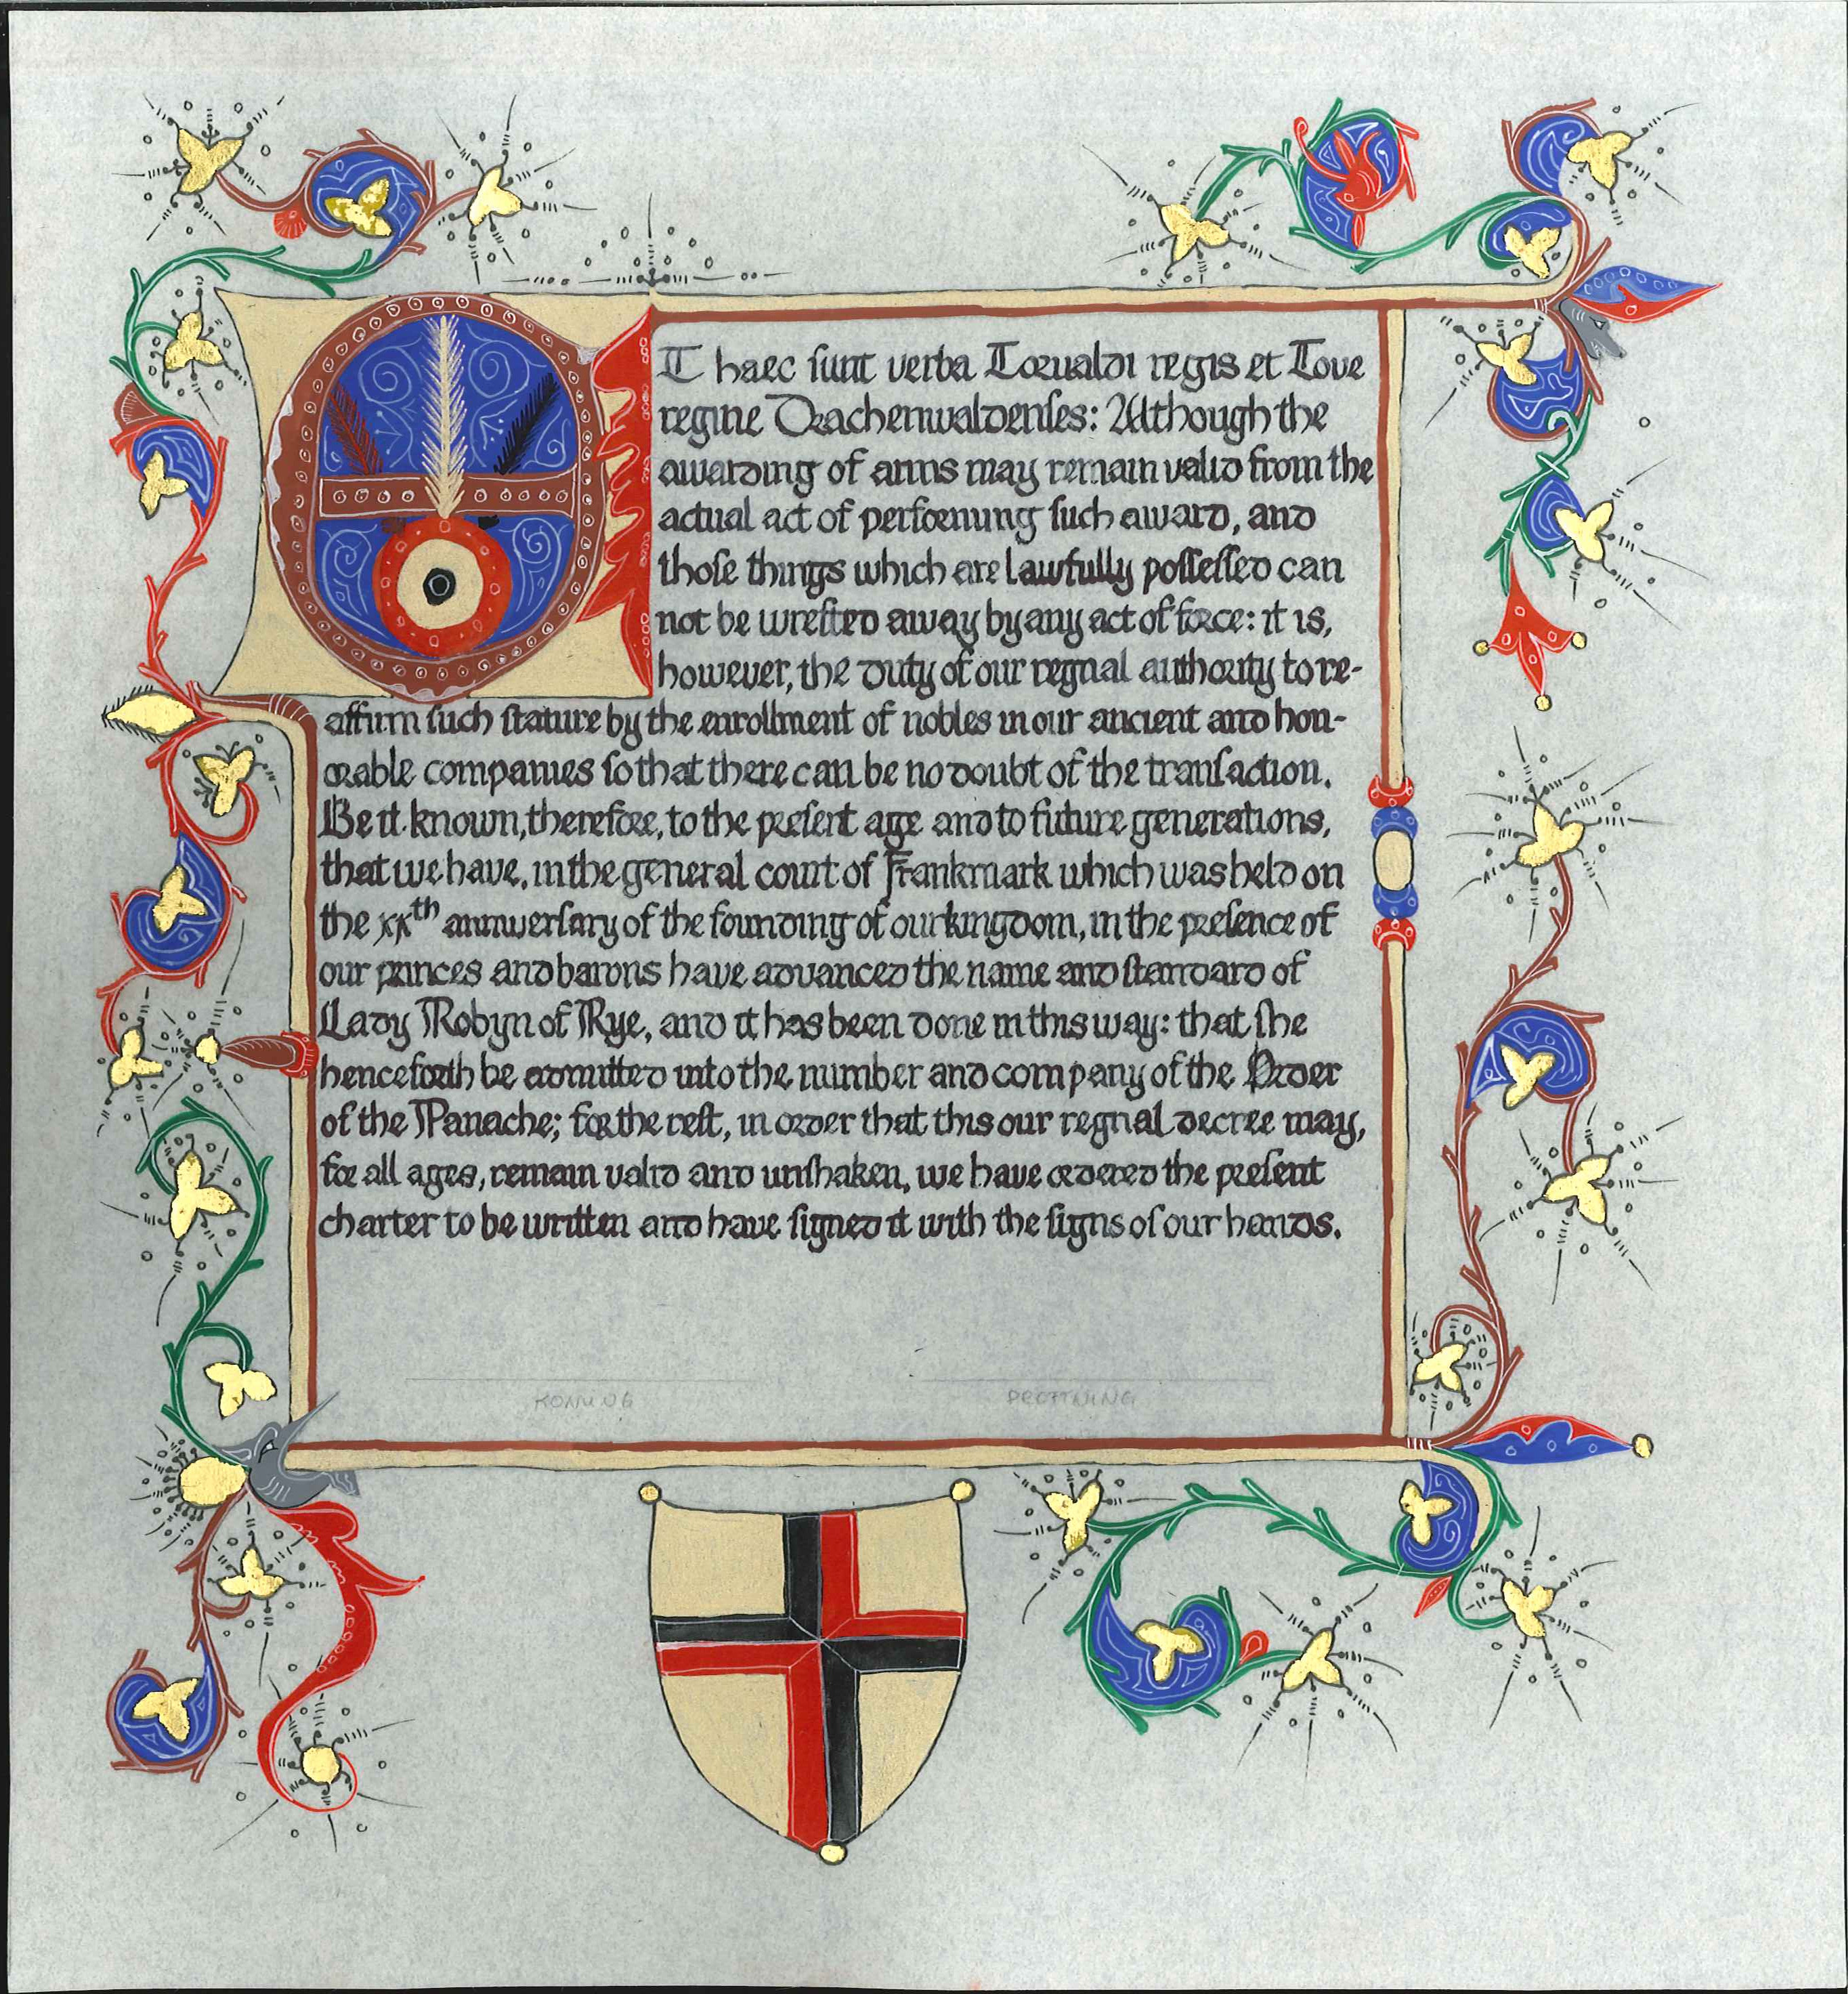 ET haec sunt verba Torualdi regis et Tove
regine Drachenwaldenses: Although the
awarding of arms may remain valid from the
actual act of performing such award, and
those things which are lawfully possessed can
not be wrested away by any act of force: it is,
however, the duty of our regnal authority to re-
affirm such stature by the enrollment of nobles in our ancient and hon-
orable companies so that there can be no doubt of the transaction.
Be it known, therefore, to the present age and to future generations,
that we have, in the general court of Frankmark which was held on
the xxth anniversary of the founding of our kingdom, in the presence of
our princes and barons have advanced the name and standard of
Lady Robyn of Rye, and it has been done in this way: that she
henceforth be admitted into the number and company of the Order
of the Panache; for the rest, in order that this our regnal decree may,
for all ages, remain valid and unshaken, we have ordered the present
charter to be written and have signed it with the signs of our hands.
KONUNG DROTTNING